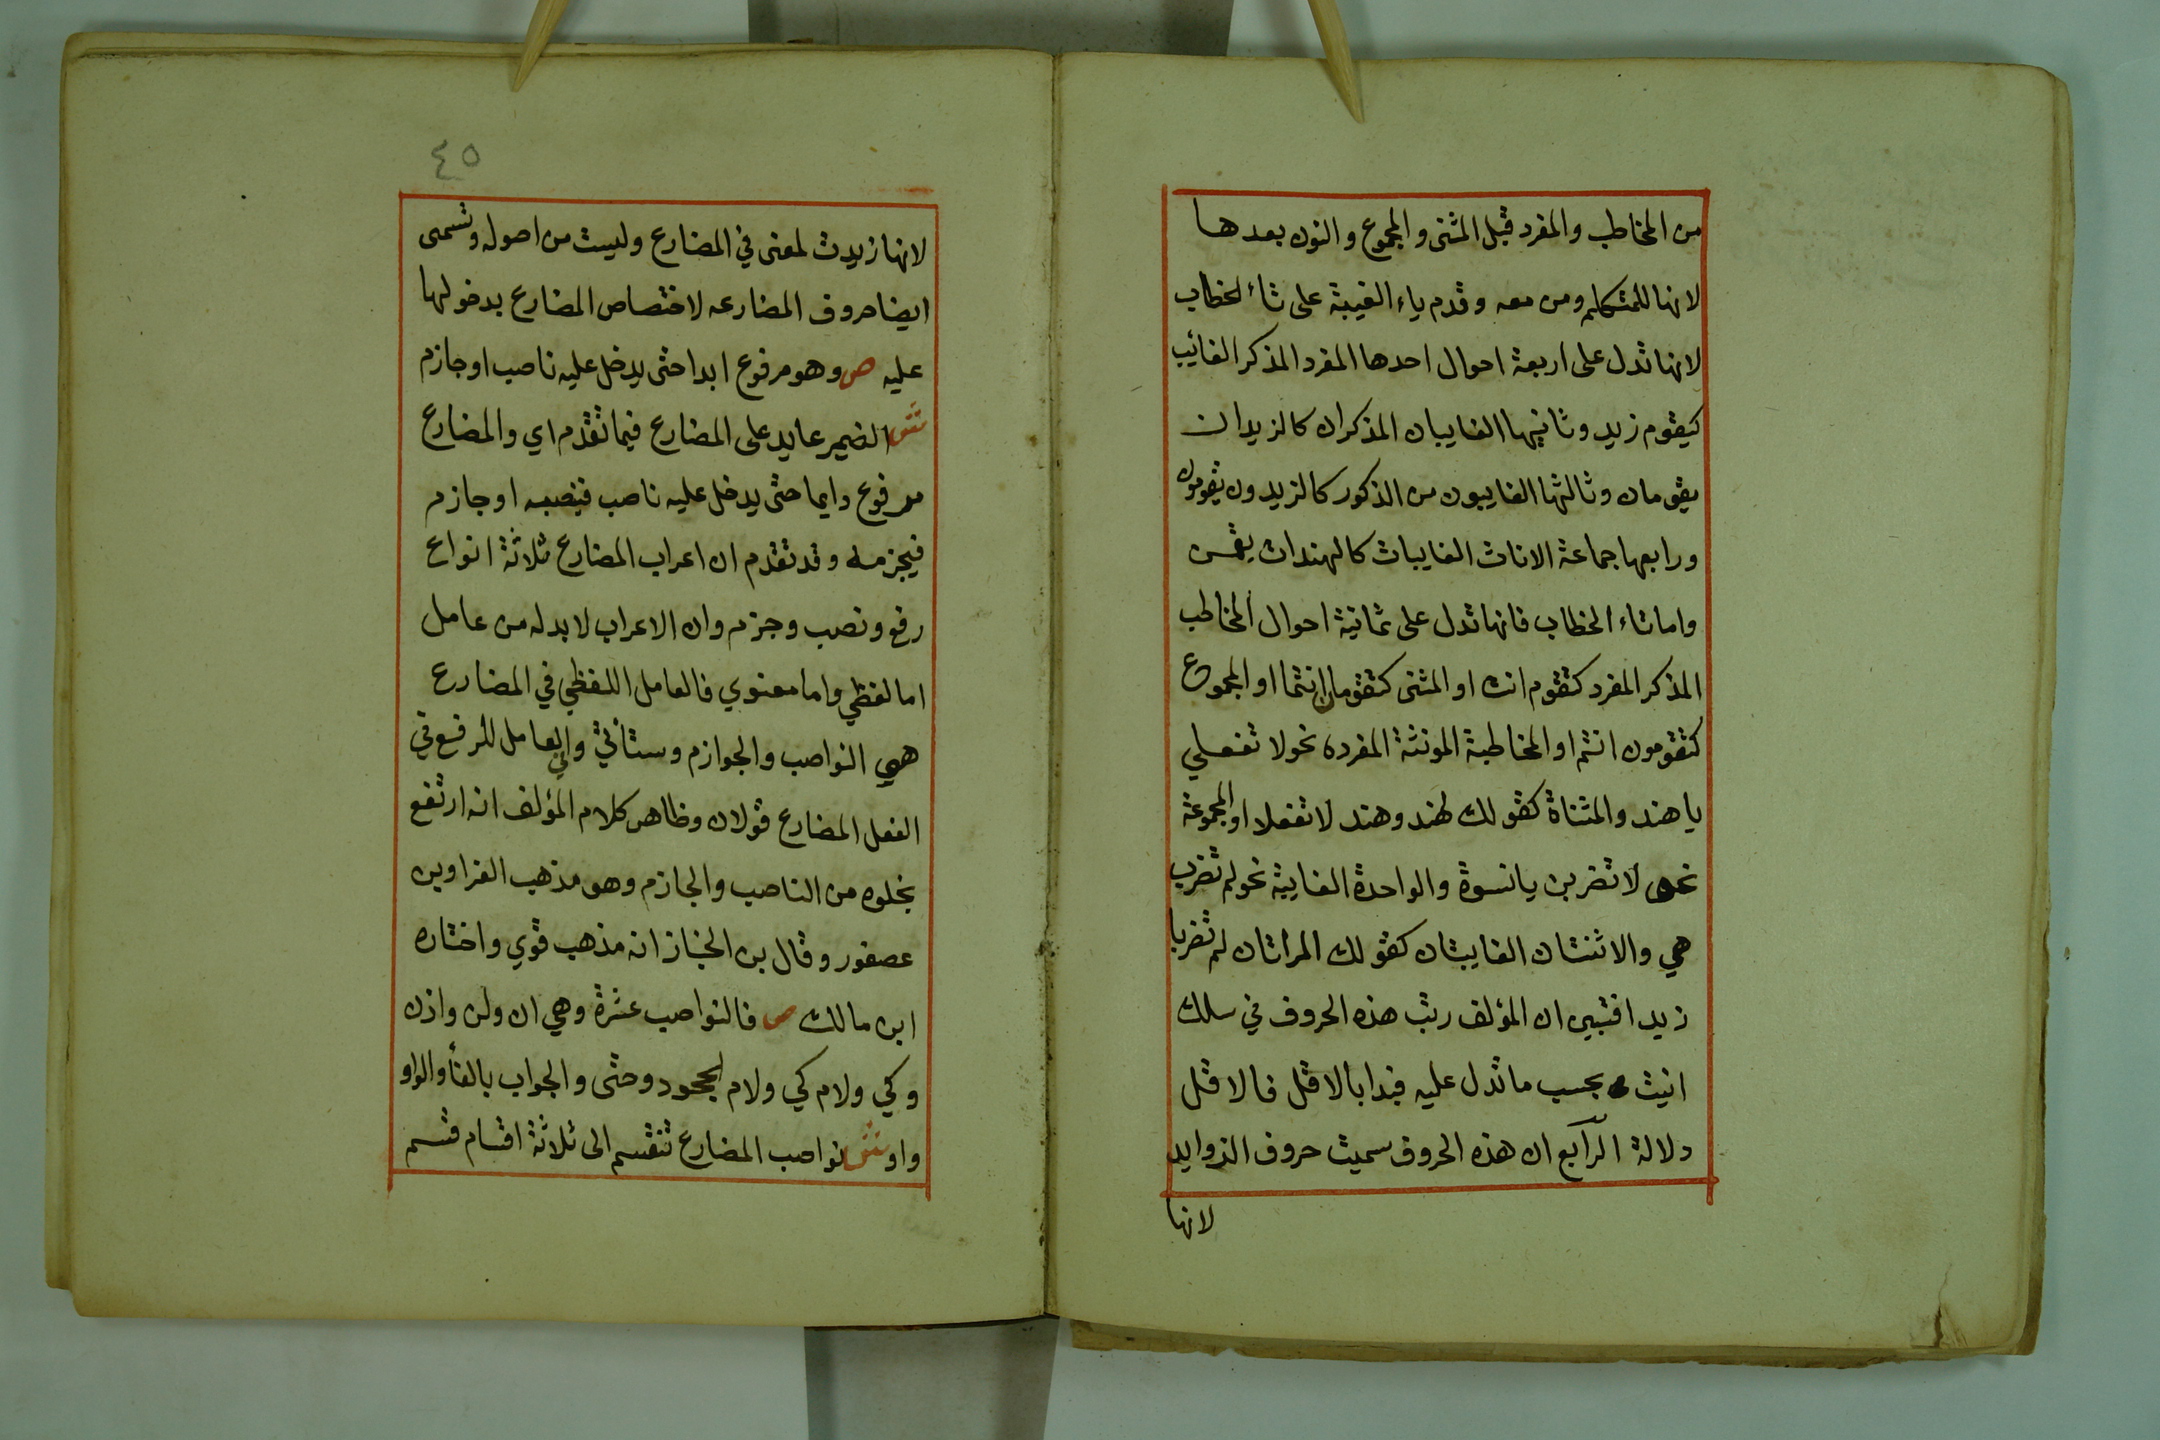 من المخاطب والمفرد قبل المثنى والمجموع والنون بعدها
لانها للمتكلم ومن معه وقدم ياء الغيبة على تاء الخطاب
لانها تدل على اربعة احوال احدها المفرد المذكر الغائب
كيقوم زيد وثانيها الغايبان المذكران كالزيدان
يقومان وثالثها الغايبون من الذكور كالزيدون يقومون
ورابعها جماعة الاناث الغايبات كالهندات يقمن
واما تاء الخطاب فانها تدل على ثمانية احوال المخاطب
المذكر المفرد كتقوم انت او المثنى كتقومان انتما او المجموع
كتقومون انتم او المخاطبة المونثة المفرده نحو لا تفعلي
يا هند والمثناة كقولك لهند وهند لا تفعلا او المجموعة
نحو لا تضربن يا نسوة والواحدة الغايبة نحو لم تضرب
هي والاثنتان الغايبتان كقولك المراتان لم تضربا
زيدا فتبين ان المؤلف رتب هذه الحروف في سلك
انيت بحسب ما تدل عليه فبدا بالاقل فالاقل
دلالة الرابع ان هذه الحروف سميت حروف الزوايد
لانها
٤٥
لانها زيدت لمعنى في المضارع وليست من اصوله وتسمى
ايضا حروف المضارعه لاختصاص المضارع بدخولها
عليه ص وهو مرفوع ابدا حتى يدخل عليه ناصب او جازم
ش الضمير عايد على المضارع فيما تقدم اي والمضارع
مرفوع دايما حتى يدخل عليه ناصب فينصبه او جازم
فيجزمه وقد تقدم ان اعراب المضارع ثلاثة انواع
رفع ونصب وجزم وان الاعراب لا بد له من عامل
اما لفظي واما معنوي فالعامل اللفظي في المضارع
هي النواصب والجوازم وستاتي والعامل للرفع في
الفعل المضارع قولان وظاهر كلام المؤلف انه ارتفع
بخلوه من الناصب والجازم وهو مذهب الفرا وبن
عصفور وقال بن الخباز انه مذهب قوي واختاره
ابن مالك ص فالنواصب عشرة وهي ان ولن واذن
وكي ولام كي ولام الجحود وحتى والجواب بالفأ والواو
واو ش نواصب المضارع تنقسم الى ثلاثة اقسام قسم